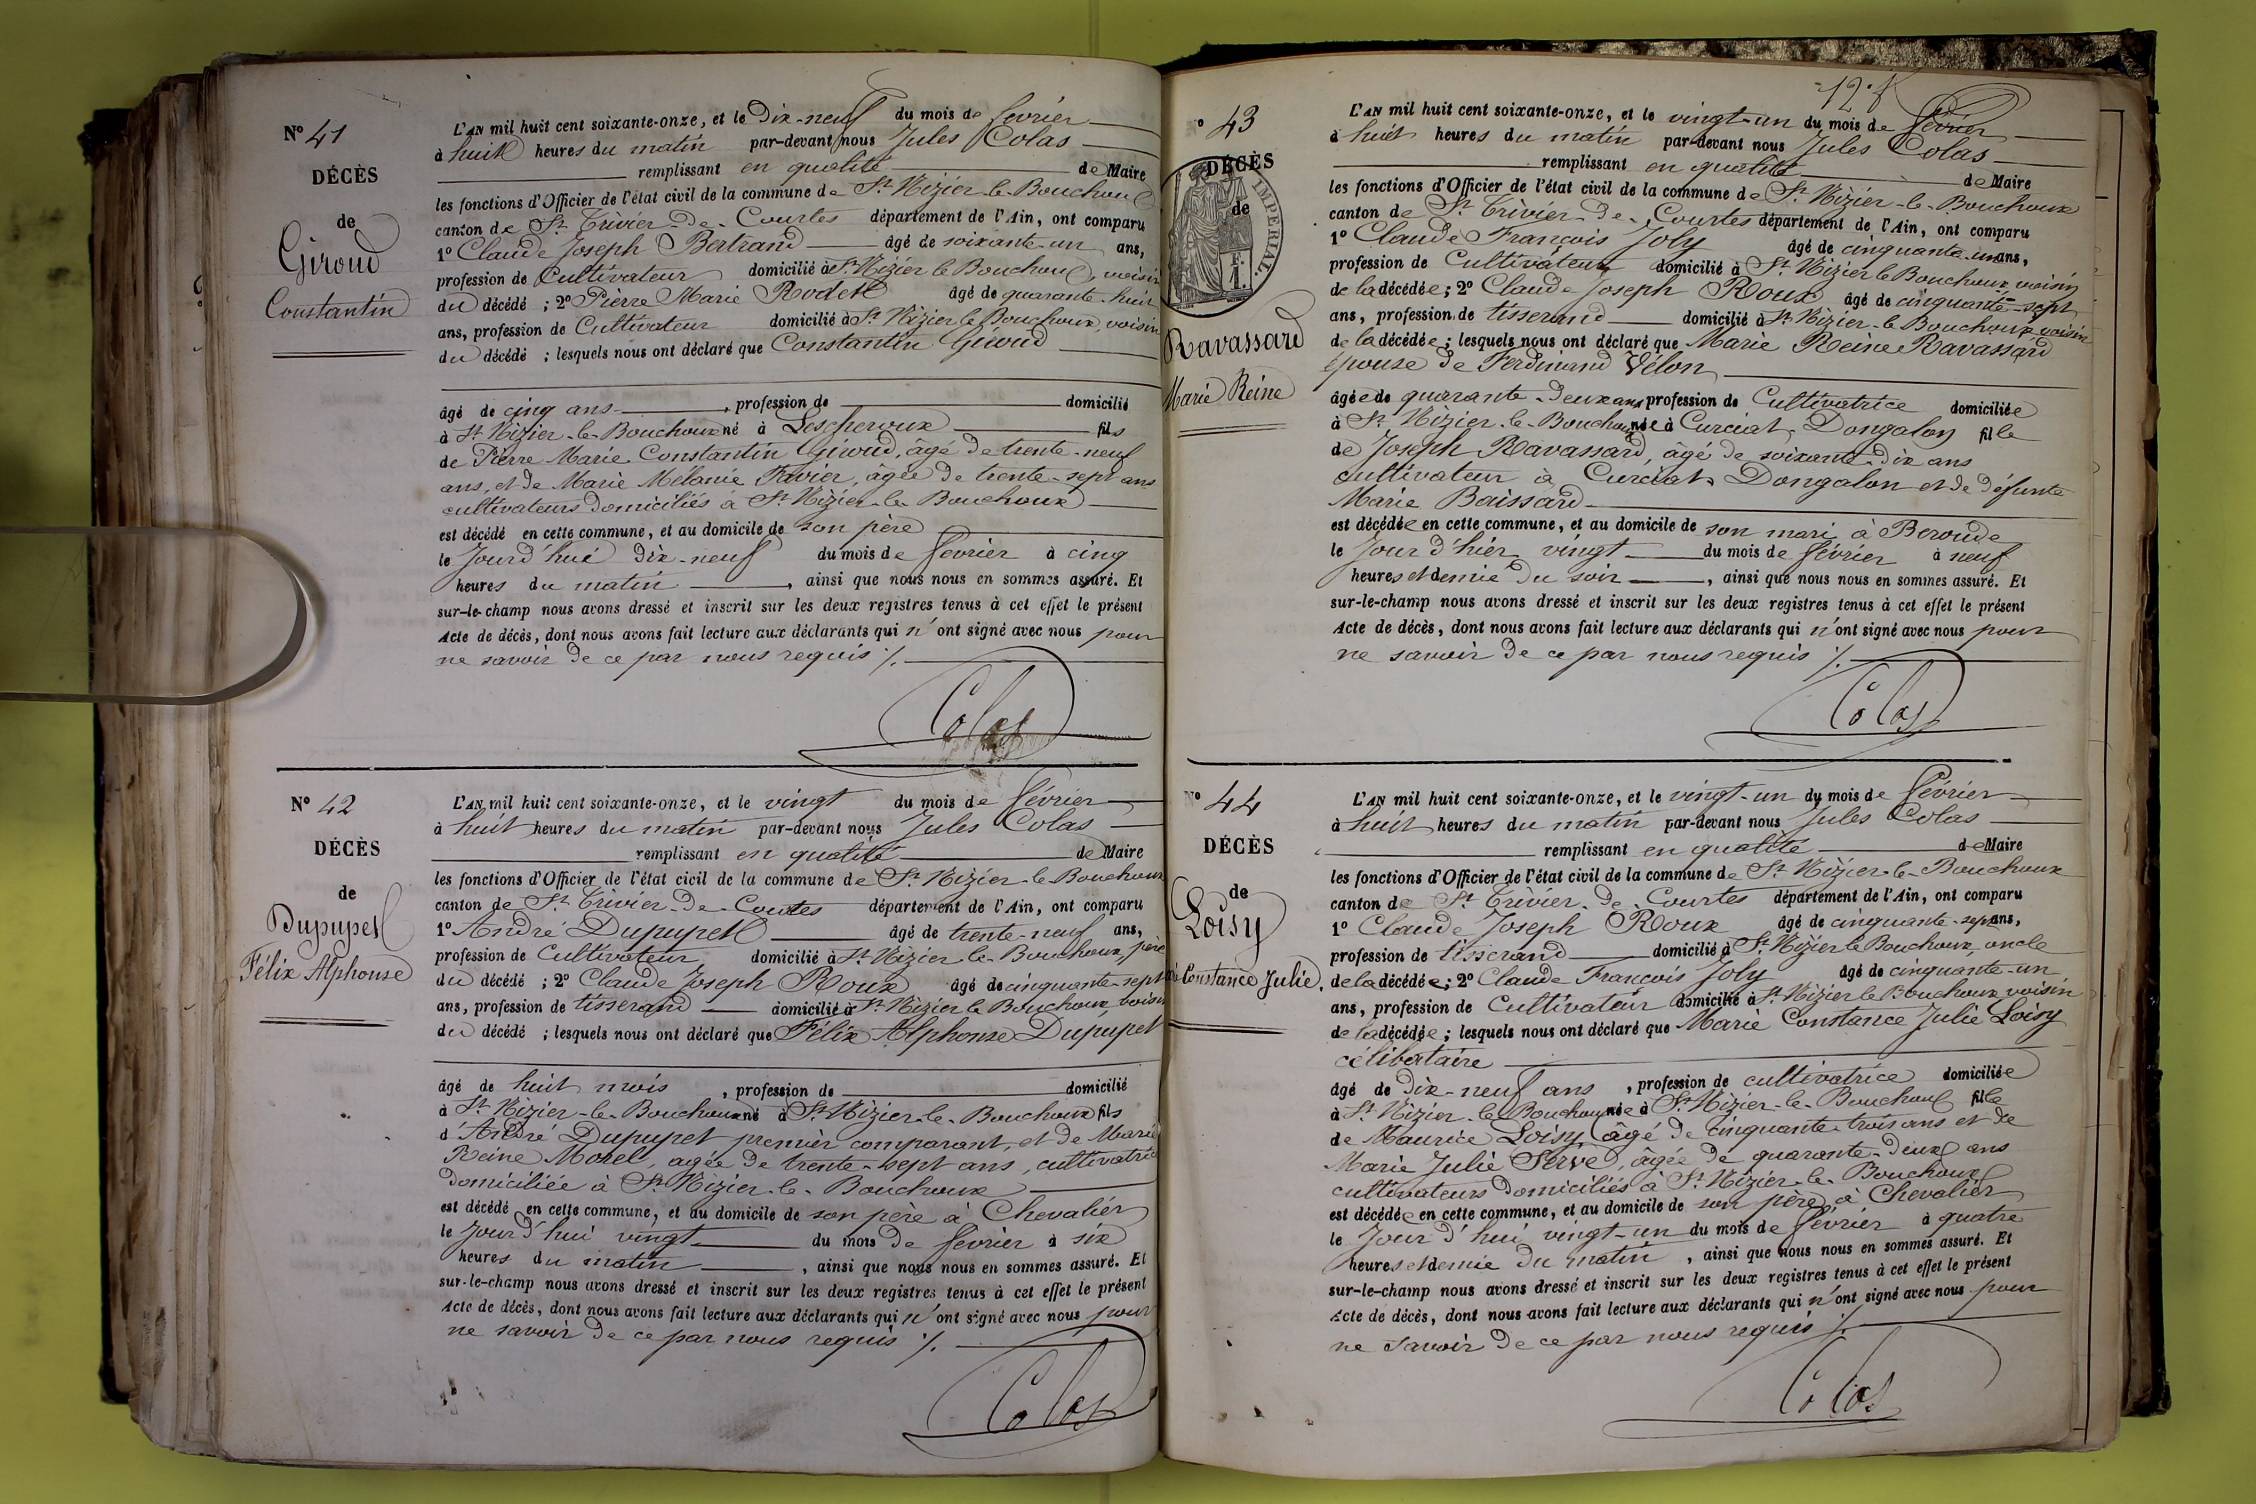 N° 41
DÉCÈS
de
Giroud
Constantin
L'AN mil huit cent soixante-onze, et le Dix-neuf du mois de février
à huit heures du matin par-devant nous Jules Colas
remplissant en qualité de Maire
les fonctions d'Officier de l'état civil de la commune de St Nizier-le-Bouchoux
canton de St Trivier-de-Courtes département de l'Ain, ont comparu
1° Claude Joseph Bertrand âgé de soixante-un ans,
profession de Cultivateur domicilié à St Nizier le Bouchoux, voisin
du décédé ; 2° Pierre Marie Rodet âgé de quarante-huit
ans, profession de Cultivateur domicilié à St Nizier le Bouchoux, voisin
du décédé ; lesquels nous ont déclaré que Constantin Giroud
âgé de cinq ans, profession de domicilié
à St Nizier-le-Bouchoux né à Lescheroux fils
de Pierre Marie Constantin Giroud, âgé de trente-neuf
ans, et de Marie Mélanie Favier, âgée de trente-sept ans
cultivateurs domiciliés à St Nizier-le-Bouchoux
est décédé en cette commune, et au domicile de son père
le Jourd'hui dix-neuf du mois de février à cinq
heures du matin, ainsi que nous nous en sommes assuré. Et
sur-le-champ nous avons dressé et inscrit sur les deux registres tenus à cet effet le présent
Acte de décès, dont nous avons fait lecture aux déclarants qui n'ont signé avec nous pour
ne savoir de ce par nous requis ./.
Colas
N° 42
DÉCÈS
de
Dupupet
Félix Alphonse
L'AN mil huit cent soixante-onze, et le vingt du mois de février
à huit heures du matin par-devant nous Jules Colas
remplissant en qualité de Maire
les fonctions d'Officier de l'état civil de la commune de St Nizier-le-Bouchoux
canton de St Trivier-de-Courtes département de l'Ain, ont comparu
1° André Dupupet âgé de trente-neuf ans,
profession de Cultivateur domicilié à St Nizier-le-Bouchoux, père
du décédé ; 2° Claude Joseph Roux âgé de cinquante-sept
ans, profession de tisserand domicilié à St Nizier le Bouchoux, voisin
du décédé ; lesquels nous ont déclaré que Félix Alphonse Dupupet
âgé de huit mois, profession de domicilié
à St Nizier-le-Bouchoux né à St Nizier-le-Bouchoux fils
d'André Dupupet premier comparant, et de Marie
Reine Morel, agée de trente-sept ans, cultivatrice
domiciliée à St Nizier-le-Bouchoux
est décédé en cette commune, et au domicile de son père à Chevalier
le Jour d'hui vingt du mois de février à six
heures du matin, ainsi que nous nous en sommes assuré. Et
sur-le-champ nous avons dressé et inscrit sur les deux registres tenus à cet effet le présent
Acte de décès, dont nous avons fait lecture aux déclarants qui n'ont signé avec nous pour
ne savoir de ce par nous requis ./.
Colas
° 43
DÉCÈS
de
IMPÉRIAL.
F.
1.
Ravassard
Marie Reine
L'AN mil huit cent soixante-onze, et le vingt-un du mois de février
à huit heures du matin par-devant nous Jules Colas
remplissant en qualité de Maire
les fonctions d'Officier de l'état civil de la commune de St Nizier-le-Bouchoux
canton de St Trivier-de-Courtes département de l'Ain, ont comparu
1° Claude François Joly âgé de cinquante-un ans,
profession de Cultivateur domicilié à St Nizier le Bouchoux, voisin
de la décédée ; 2° Claude Joseph Roux âgé de cinquante-sept
ans, profession de tisserand domicilié à St Nizier-le-Bouchoux voisin
de la décédée ; lesquels nous ont déclaré que Marie Reine Ravassard
épouse de Ferdinand Vélon
âgée de quarante-deux ans profession de Cultivatrice domiciliée
à St Nizier-le-Bouchoux née à Curciat-Dongalon fille
de Joseph Ravassard, âgé de soixante-dix ans
cultivateur à Curciat-Dongalon et de défunte
Marie Baissard
est décédée en cette commune, et au domicile de son mari à Beroude
le Jour d'hier vingt du mois de février à neuf
heures et demie du soir, ainsi que nous nous en sommes assuré. Et
sur-le-champ nous avons dressé et inscrit sur les deux registres tenus à cet effet le présent
Acte de décès, dont nous avons fait lecture aux déclarants qui n'ont signé avec nous pour
ne savoir de ce par nous requis ./.
Colas
N° 44
DÉCÈS
de
Loisy
Constance Julie
L'AN mil huit cent soixante-onze, et le vingt-un du mois de février
à huit heures du matin par-devant nous Jules Colas
remplissant en qualité de Maire
les fonctions d'Officier de l'état civil de la commune de St Nizier-le-Bouchoux
canton de St Trivier-de-Courtes département de l'Ain, ont comparu
1° Claude Joseph Roux âgé de cinquante-sept ans,
profession de tisserand domicilié à St Nizier le Bouchoux, oncle
de la décédée ; 2° Claude François Joly âgé de cinquante-un
ans, profession de Cultivateur domicilié à St Nizier le Bouchoux voisin
de la décédée ; lesquels nous ont déclaré que Marie Constance Julie Loisy
célibataire
âgé de dix-neuf ans, profession de cultivatrice domiciliée
à St Nizier-le-Bouchoux née à St Nizier-le-Bouchoux fille
de Maurice Loisy, âgé de cinquante-trois ans et de
Marie Julie Serve, âgée de quarante-deux ans
cultivateurs domiciliés à St Nizier-le-Bouchoux
est décédée en cette commune, et au domicile de son père à Chevalier
le Jour d'hui vingt-un du mois de février à quatre
heures et demie du matin, ainsi que nous nous en sommes assuré. Et
sur-le-champ nous avons dressé et inscrit sur les deux registres tenus à cet effet le présent
Acte de décès, dont nous avons fait lecture aux déclarants qui n'ont signé avec nous pour
ne savoir de ce par nous requis ./.
Colas